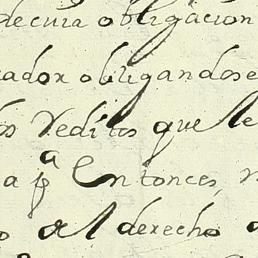 decuia obligacion
ador obligandose
os Reditos que le
a pa Entonces
o del derecho